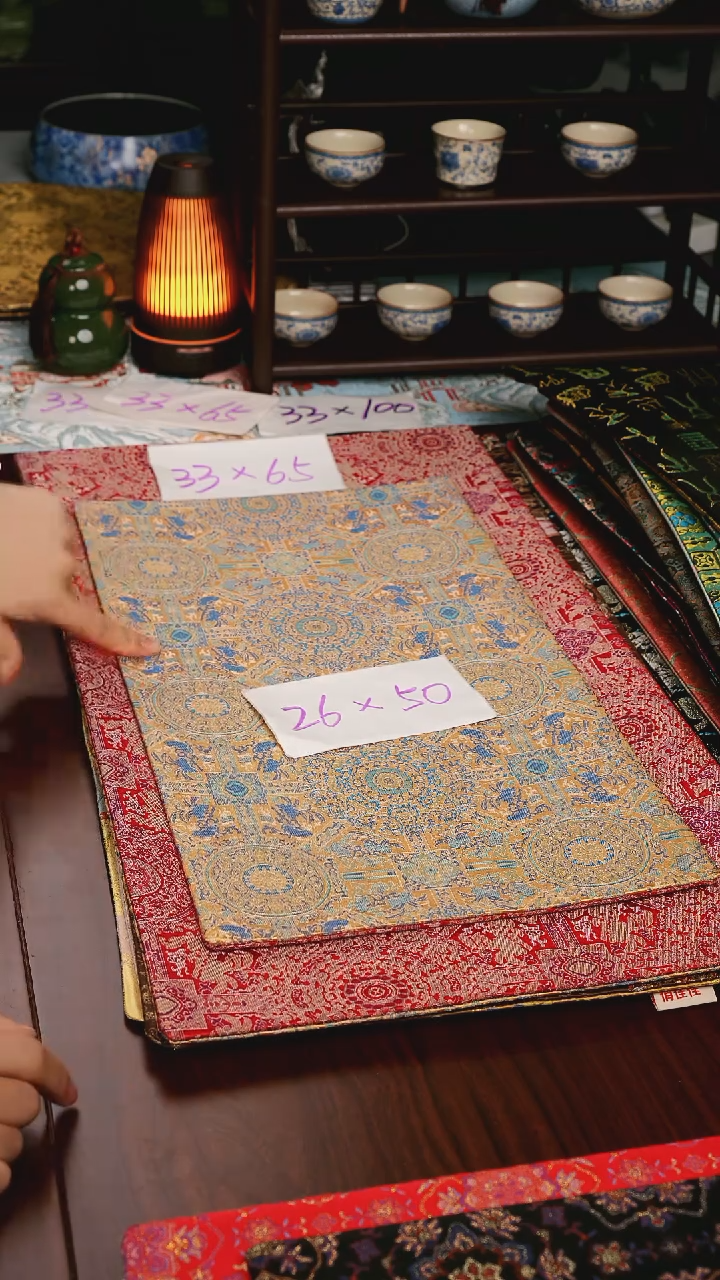 33
33×65
33×100
33×65
26×50